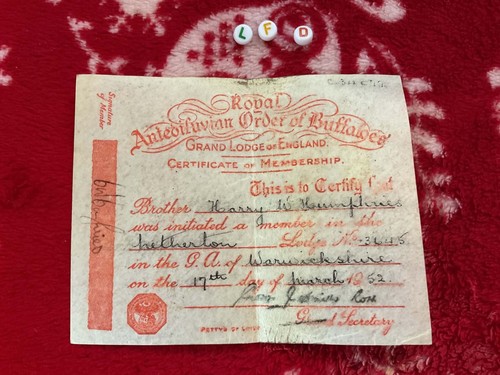 L F D
Signature of Member
Royal
Antediluvian Order of Buffaloes
GRAND LODGE OF ENGLAND.
CERTIFICATE OF MEMBERSHIP.
This is to Certify that
Brother Harry W Humphries
was initiated a member in the
Netherton Lodge No 3645
in the G.A. of Warwickshire
on the 17th day of March 1952
from
Grand Secretary